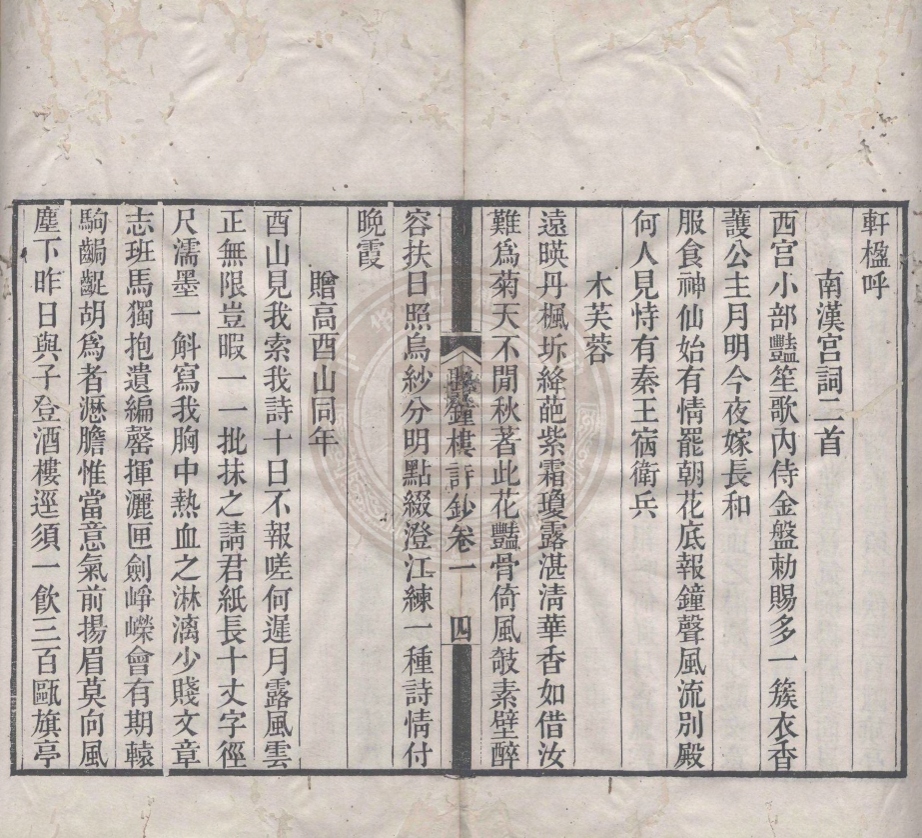 軒楹呼
南漢宮詞二首
西宮小部豔笙歌內侍金盤勅賜多一簇衣香
護公主月明今夜嫁長和
服食神仙始有情罷朝花底報鐘聲風流別殿
何人見恃有秦王宿衛兵
木芙蓉
遠暎丹楓坼絳葩紫霜瓊露湛淸華香如借汝
難爲菊天不開秋著此花豔骨倚風欹素壁醉
鐘樓詩鈔卷一 四
容扶日照烏紗分明點綴澄江練一種詩情付
晚霞
贈高酉山同年
酉山見我索我詩十日不報嗟何遲月露風雲
正無限豈暇一一批抹之請君紙長十丈字徑
尺濡墨一斛寫我胸中熱血之淋漓少賤文章
志班馬獨抱遺編罄揮灑匣劍崢嶸會有期轅
駒齷齪胡爲者瀝膽惟當意氣前揚眉莫向風
塵下昨日與子登酒樓逕須一飲三百甌旗亭